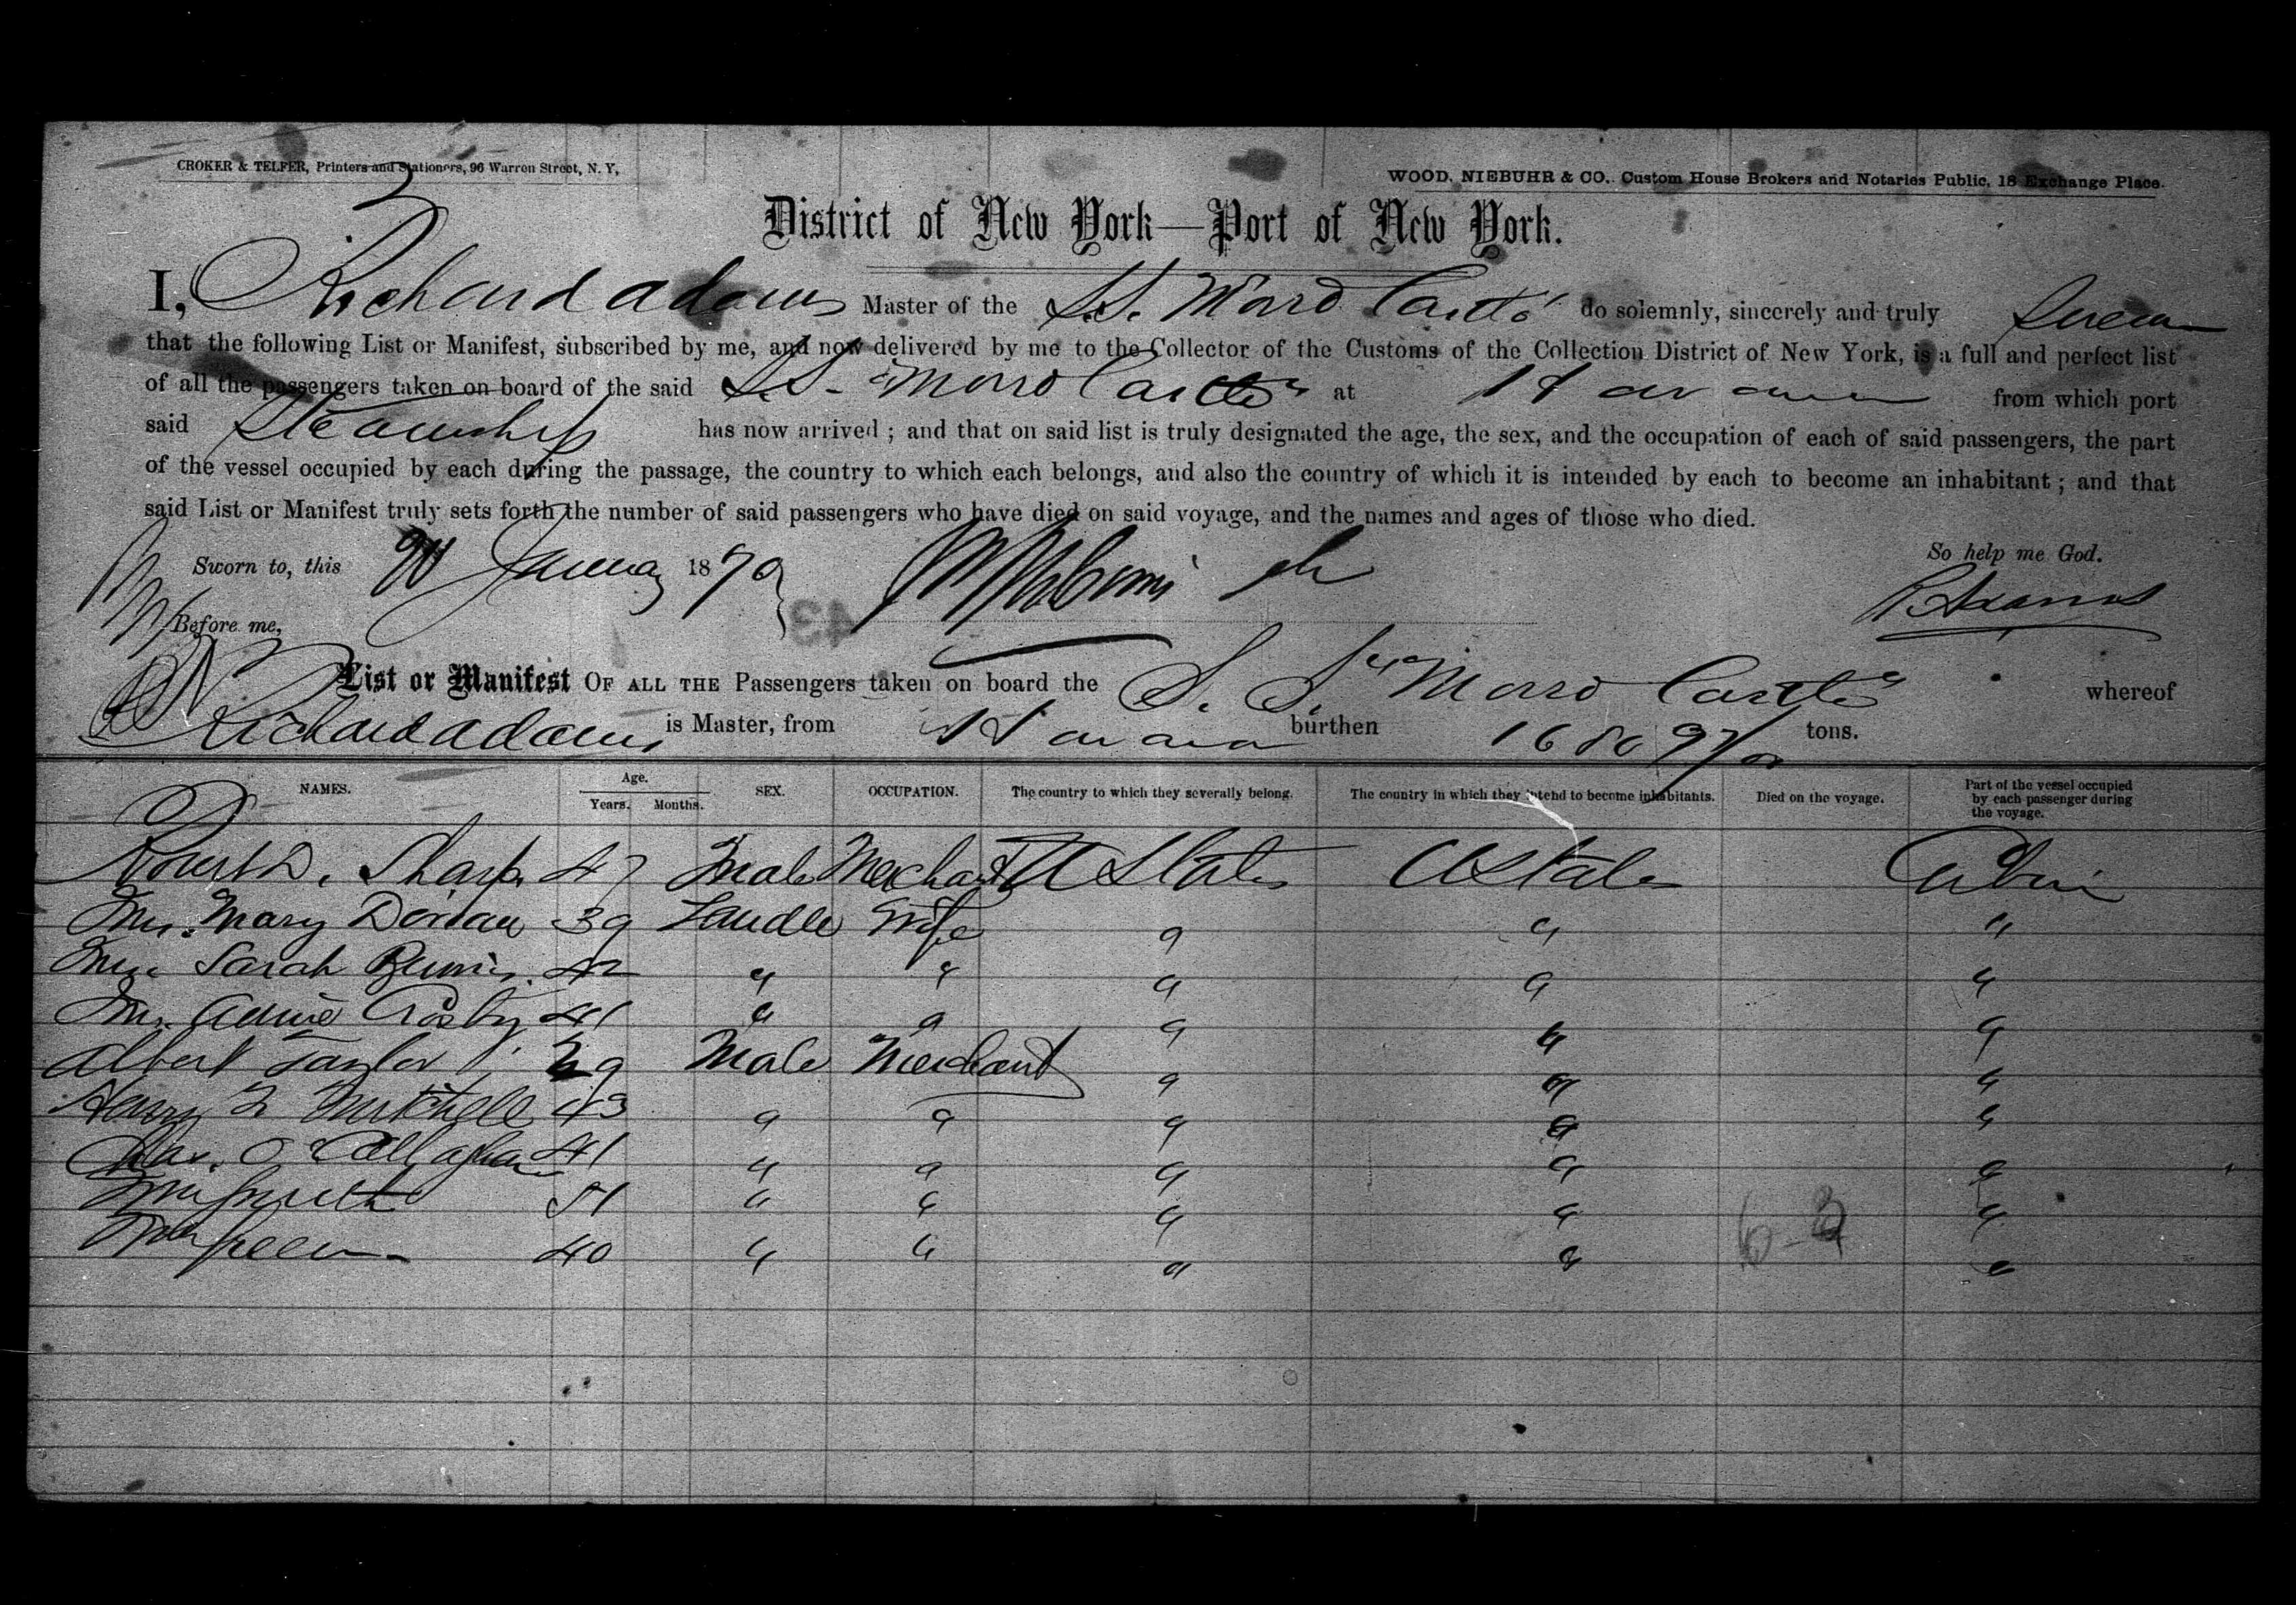 CROKER & TELFER, Printers and Stationers, 96 Warren Street, N. Y,
WOOD, NIEBUHR & CO., Custom House Brokers and Notaries Public, 18 Exchange Place.
District of New York—Port of New York.
I, Richard Adams Master of the S.S. Morro Castle do solemnly, sincerely and truly Swear
that the following List or Manifest, subscribed by me, and now delivered by me to the Collector of the Customs of the Collection District of New York, is a full and perfect list
of all the passengers taken on board of the said S.S. "Morro Castle" at Havana from which port
said Steamship has now arrived ; and that on said list is truly designated the age, the sex, and the occupation of each of said passengers, the part
of the vessel occupied by each during the passage, the country to which each belongs, and also the country of which it is intended by each to become an inhabitant ; and that
said List or Manifest truly sets forth the number of said passengers who have died on said voyage, and the names and ages of those who died.
So help me God.
Sworn to, this January 1870
43
R Adams
Before me,
List or Manifest OF ALL THE Passengers taken on board the S. S. "Morro Castle" whereof
Richard Adams is Master, from Havana burthen 1680 97/00 tons.
NAMES. Age. Years. Months. SEX. OCCUPATION. The country to which they severally belong. The country in which they intend to become inhabitants. Died on the voyage. Part of the vessel occupied by each passenger during the voyage.
Sharp 47 Male Merchant U States U States Cabin
Mrs. Mary 39 Female Wife " " "
Mrs. Sarah 42 " " " " "
Mrs. Annie Crosby 41 " " " " "
Albert Taylor 29 Male Merchant " " "
Henry Mitchell 43 " " " " "
Chas. O'Callaghan 41 " " " " "
51 " " " " "
40 " " " " "